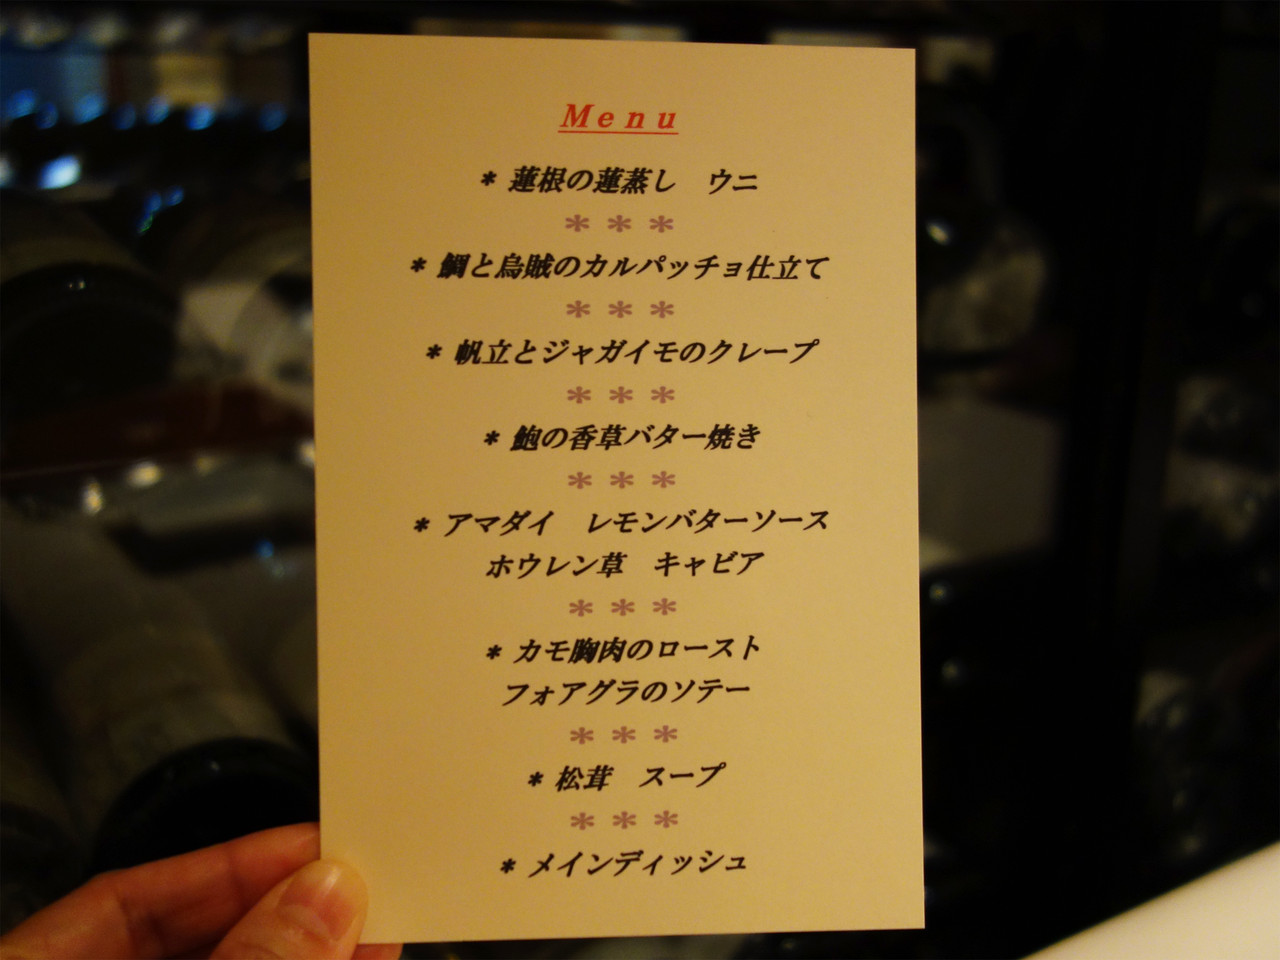 Menu
* 蓮根の蓮蒸し ウニ
* * *
* 鯛と烏賊のカルパッチョ仕立て
* * *
* 帆立とジャガイモのクレープ
* * *
* 鮑の香草バター焼き
* * *
* アマダイ レモンバターソース
ホウレン草 キャビア
* * *
* カモ胸肉のロースト
フォアグラのソテー
* * *
* 松茸 スープ
* * *
* メインディッシュ